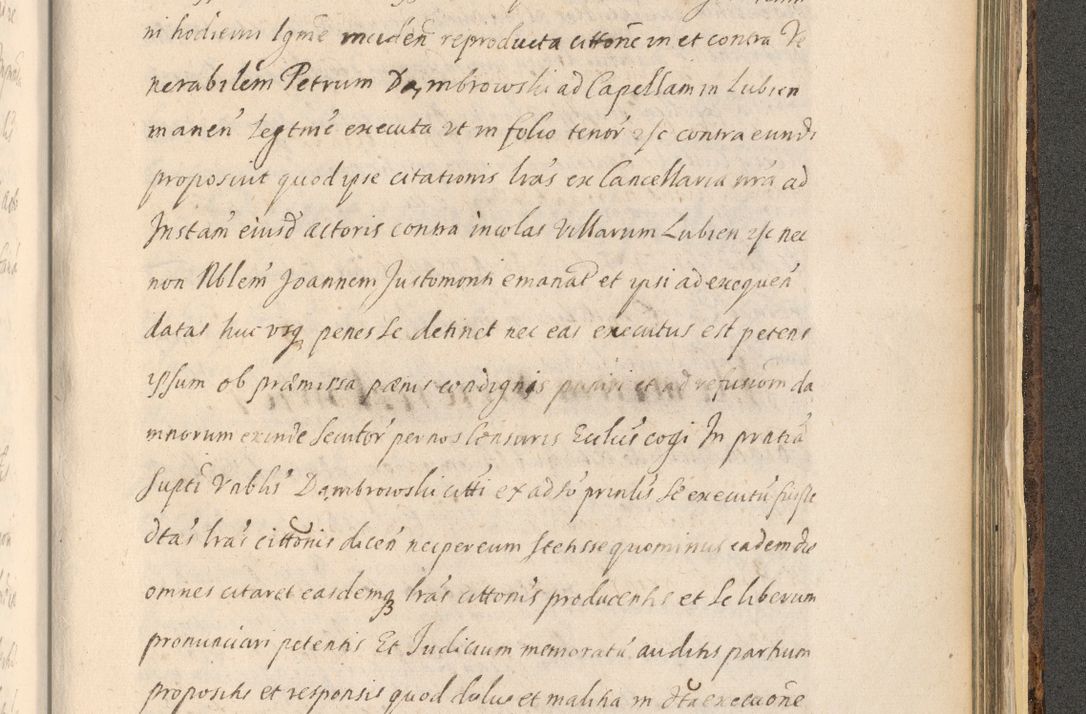 ni hodierni lgmẽ inciden̄ reproducta cittonẽ in et contra Ve
nerabilem Petrum Dąmbrowski ad Capellam in Lubien
manen̄ legtmẽ executa ut in folio tenor̄ etc contra eund
proposuit quod ipse citationis lrãs ex Cancellaria nrã ad
Instam̄ eiusd actoris contra incolas Villarum Lubien etc nec
non Nblem̄ Joannem Justomonti emanat et ipsi ad exequen̄
datas huc usq penes se detinet nec eas executus est petens
ipsum ob præmissa pænis condignis puniri et ad refusiom da
mnorum exinde secutor̄ per nos Censuris Eccliis cogi In prntiã
supti Vnblis Dąmbrowski citti ex adso prntis se executū fuisse
dtas lrãs cittonis dicen̄ nec per eum stetisse quominus eadem die
omnes citaret easdemq lrãs cittonis producentis et se liberum
pronunciari petentis Et Judicium memoratū auditis partium
propositis et responsis quod dolus et malitia in dta executionẽ